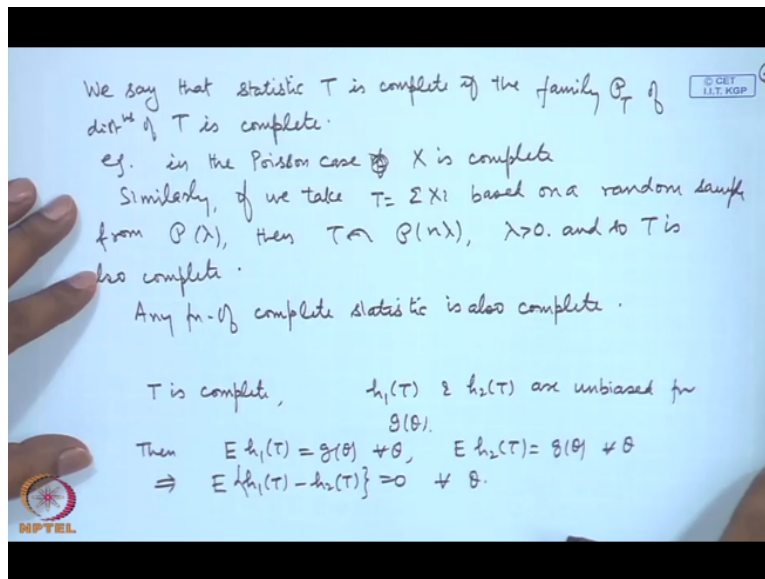 We say that statistic T is complete if the family 𝒫_T of
dist^ns of T is complete.
© CET
I.I.T. KGP
eg. in the Poisson case X is complete
Similarly, if we take T = Σ Xi based on a random sample
from 𝒫(λ), then T ~ 𝒫(nλ), λ>0. and so T is
also complete.
Any fn. of complete statistic is also complete.
T is complete, h₁(T) & h₂(T) are unbiased for
g(θ).
Then E h₁(T) = g(θ) ∀ θ, E h₂(T) = g(θ) ∀ θ
⇒ E {h₁(T) – h₂(T)} = 0 ∀ θ.
NPTEL